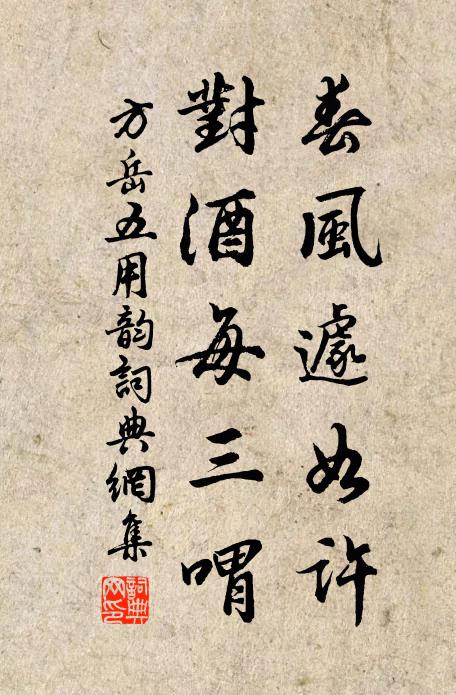 春風遽如許
對酒每三喟
方岳五用韵詞典網集
詞典網印